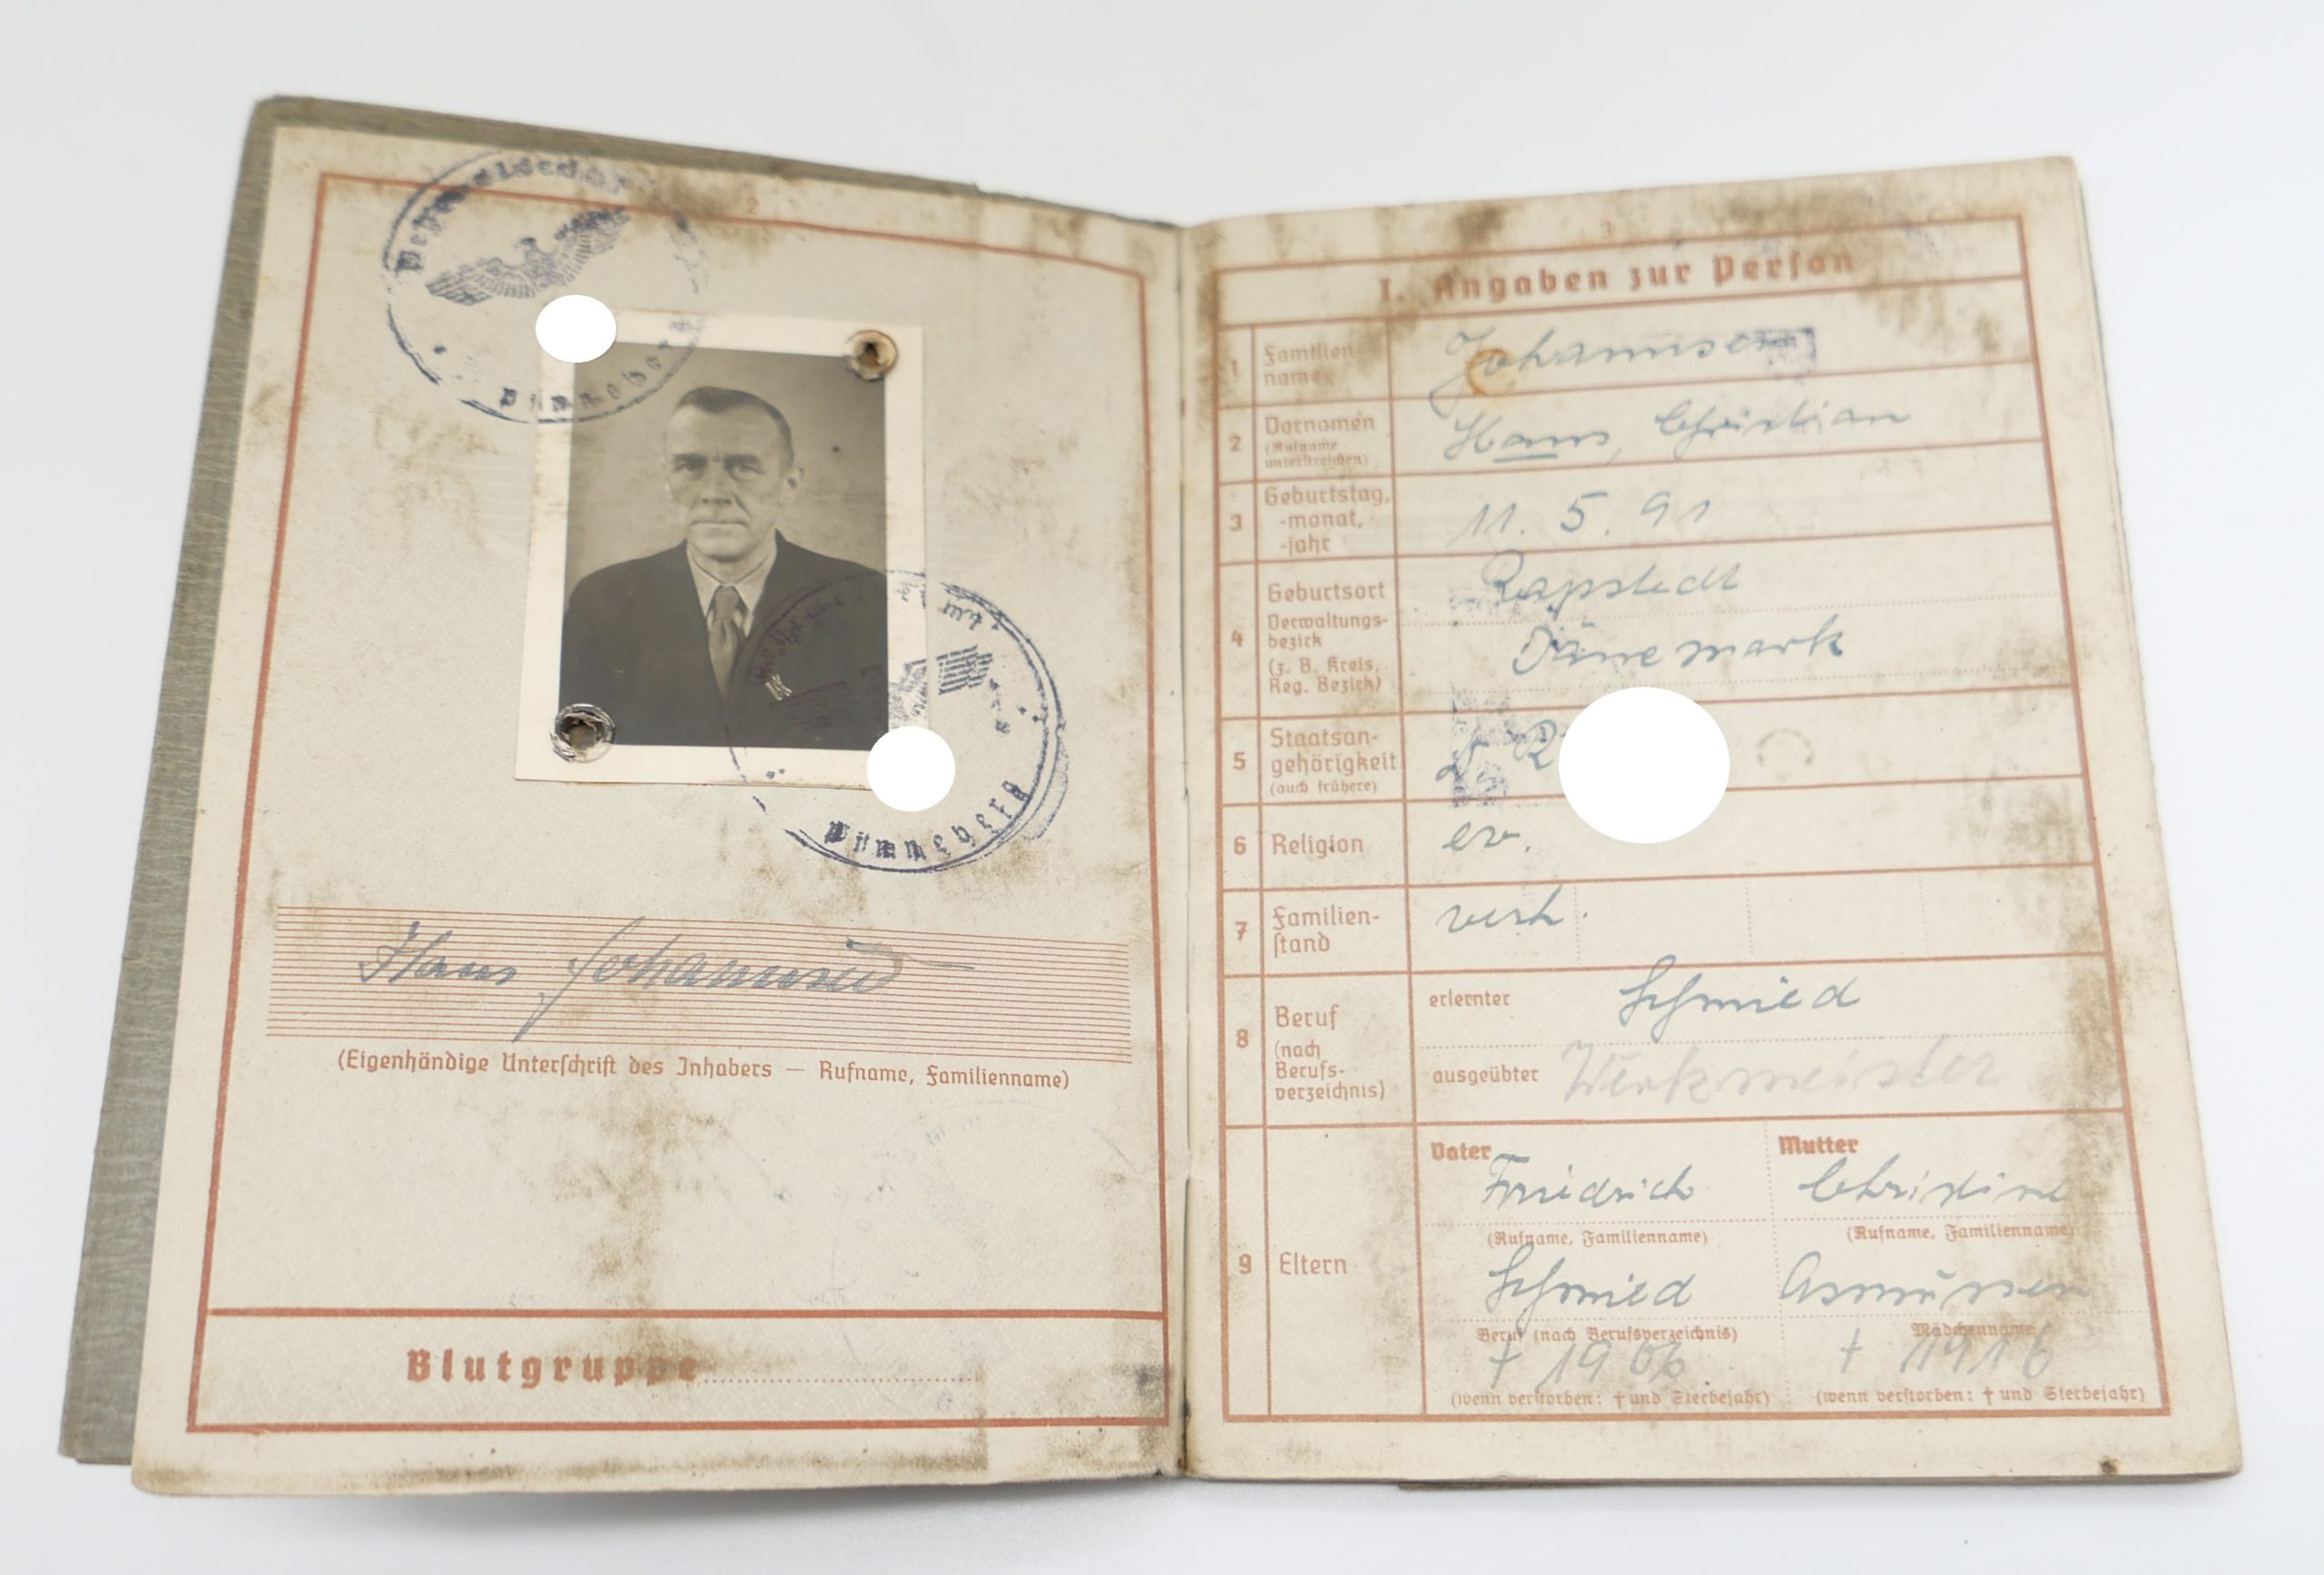 2
Wehrmeldeamt
Pinneberg
Pinneberg
Hans Johannsen
(Eigenhändige Unterschrift des Inhabers — Rufname, Familienname)
Blutgruppe
3
I. Angaben zur Person
1 Familien-
name
Johannsen
2 Vornamen
(Rufname
unterstreichen)
Hans, Christian
3 Geburtstag,
-monat,
-jahr
11. 5. 91
4 Geburtsort
Verwaltungs-
bezirk
(z. B. Kreis,
Reg. Bezirk)
Rapstedt
Dänemark
5 Staatsan-
gehörigkeit
(auch frühere)
D R
6 Religion
ev.
7 Familien-
stand
verh.
8 Beruf
(nach
Berufs-
verzeichnis)
erlernter Schmied
ausgeübter Werkmeister
9 Eltern
Vater Mutter
Friedrich Christine
(Rufname, Familienname) (Rufname, Familienname)
Schmied Asmussen
Beruf (nach Berufsverzeichnis) Mädchenname
† 1906 † 1916
(wenn verstorben: † und Sterbejahr) (wenn verstorben: † und Sterbejahr)